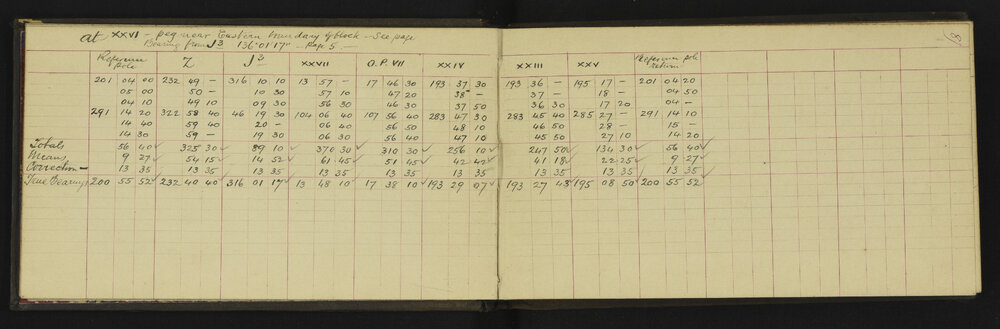 13
at XXVI - peg near Eastern boundary of block - See page
Bearing from J3 136° 01' 17" - Page 5 -
Reference pole Z J3 XXVII O.P. VII XXIV XXIII XXV Reference pole return
201 04 00 232 49 - 316 10 10 13 57 - 17 46 30 193 37 30 193 36 - 195 17 - 201 04 20
05 00 50 - 10 30 57 10 47 20 38 - 37 - 18 - 04 50
04 10 49 10 09 30 56 30 46 30 37 50 36 30 17 20 04 -
291 14 20 322 58 40 46 19 30 104 06 40 107 56 40 283 47 30 283 45 40 285 27 - 291 14 10
14 40 59 40 20 - 06 40 56 50 48 10 46 50 28 - 15 -
14 30 59 - 19 30 06 30 56 40 47 10 45 50 27 10 14 20
Totals 56 40 325 30 89 10 370 30 310 30 256 10 247 50 134 30 56 40
Means 9 27 54 15 14 52 61 45 51 45 42 42 41 18 22 25 9 27
Correction - 13 35 13 35 13 35 13 35 13 35 13 35 13 35 13 35 13 35
True Bearing 200 55 52 232 40 40 316 01 17 13 48 10 17 38 10 193 29 07 193 27 43 195 08 50 200 55 52